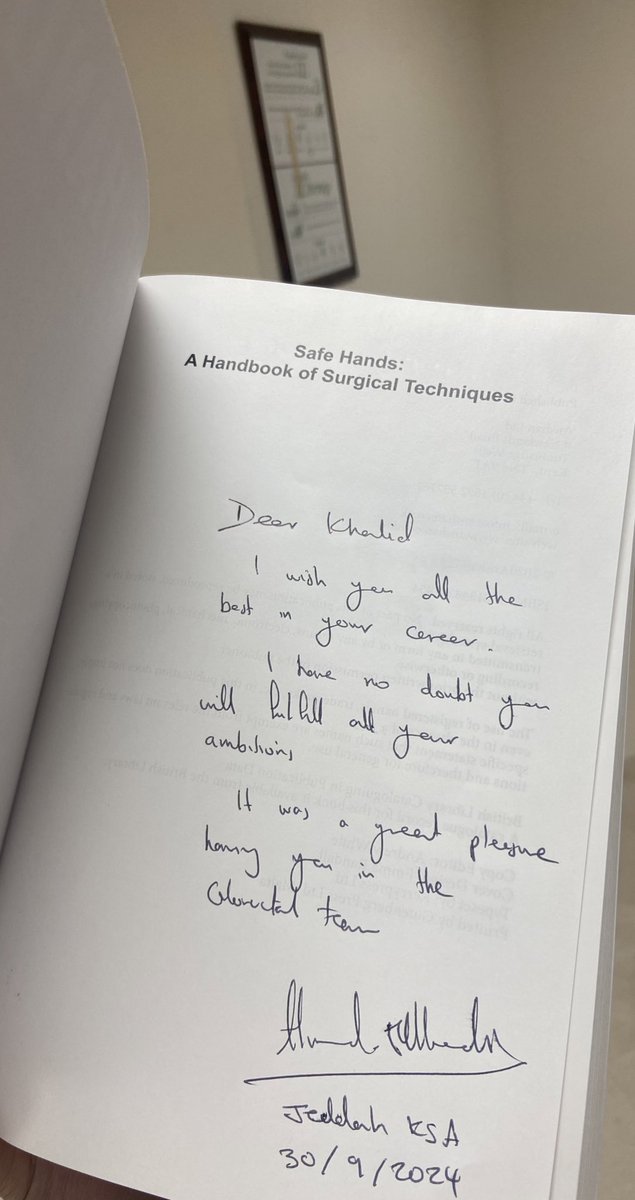 Safe Hands:
A Handbook of Surgical Techniques
Dear Khalid
I wish you all the
best in your career.
I have no doubt you
will fulfill all your
ambitions
It was a great pleasure
having you in the
Colorectal team
Jeddah KSA
30/9/2024